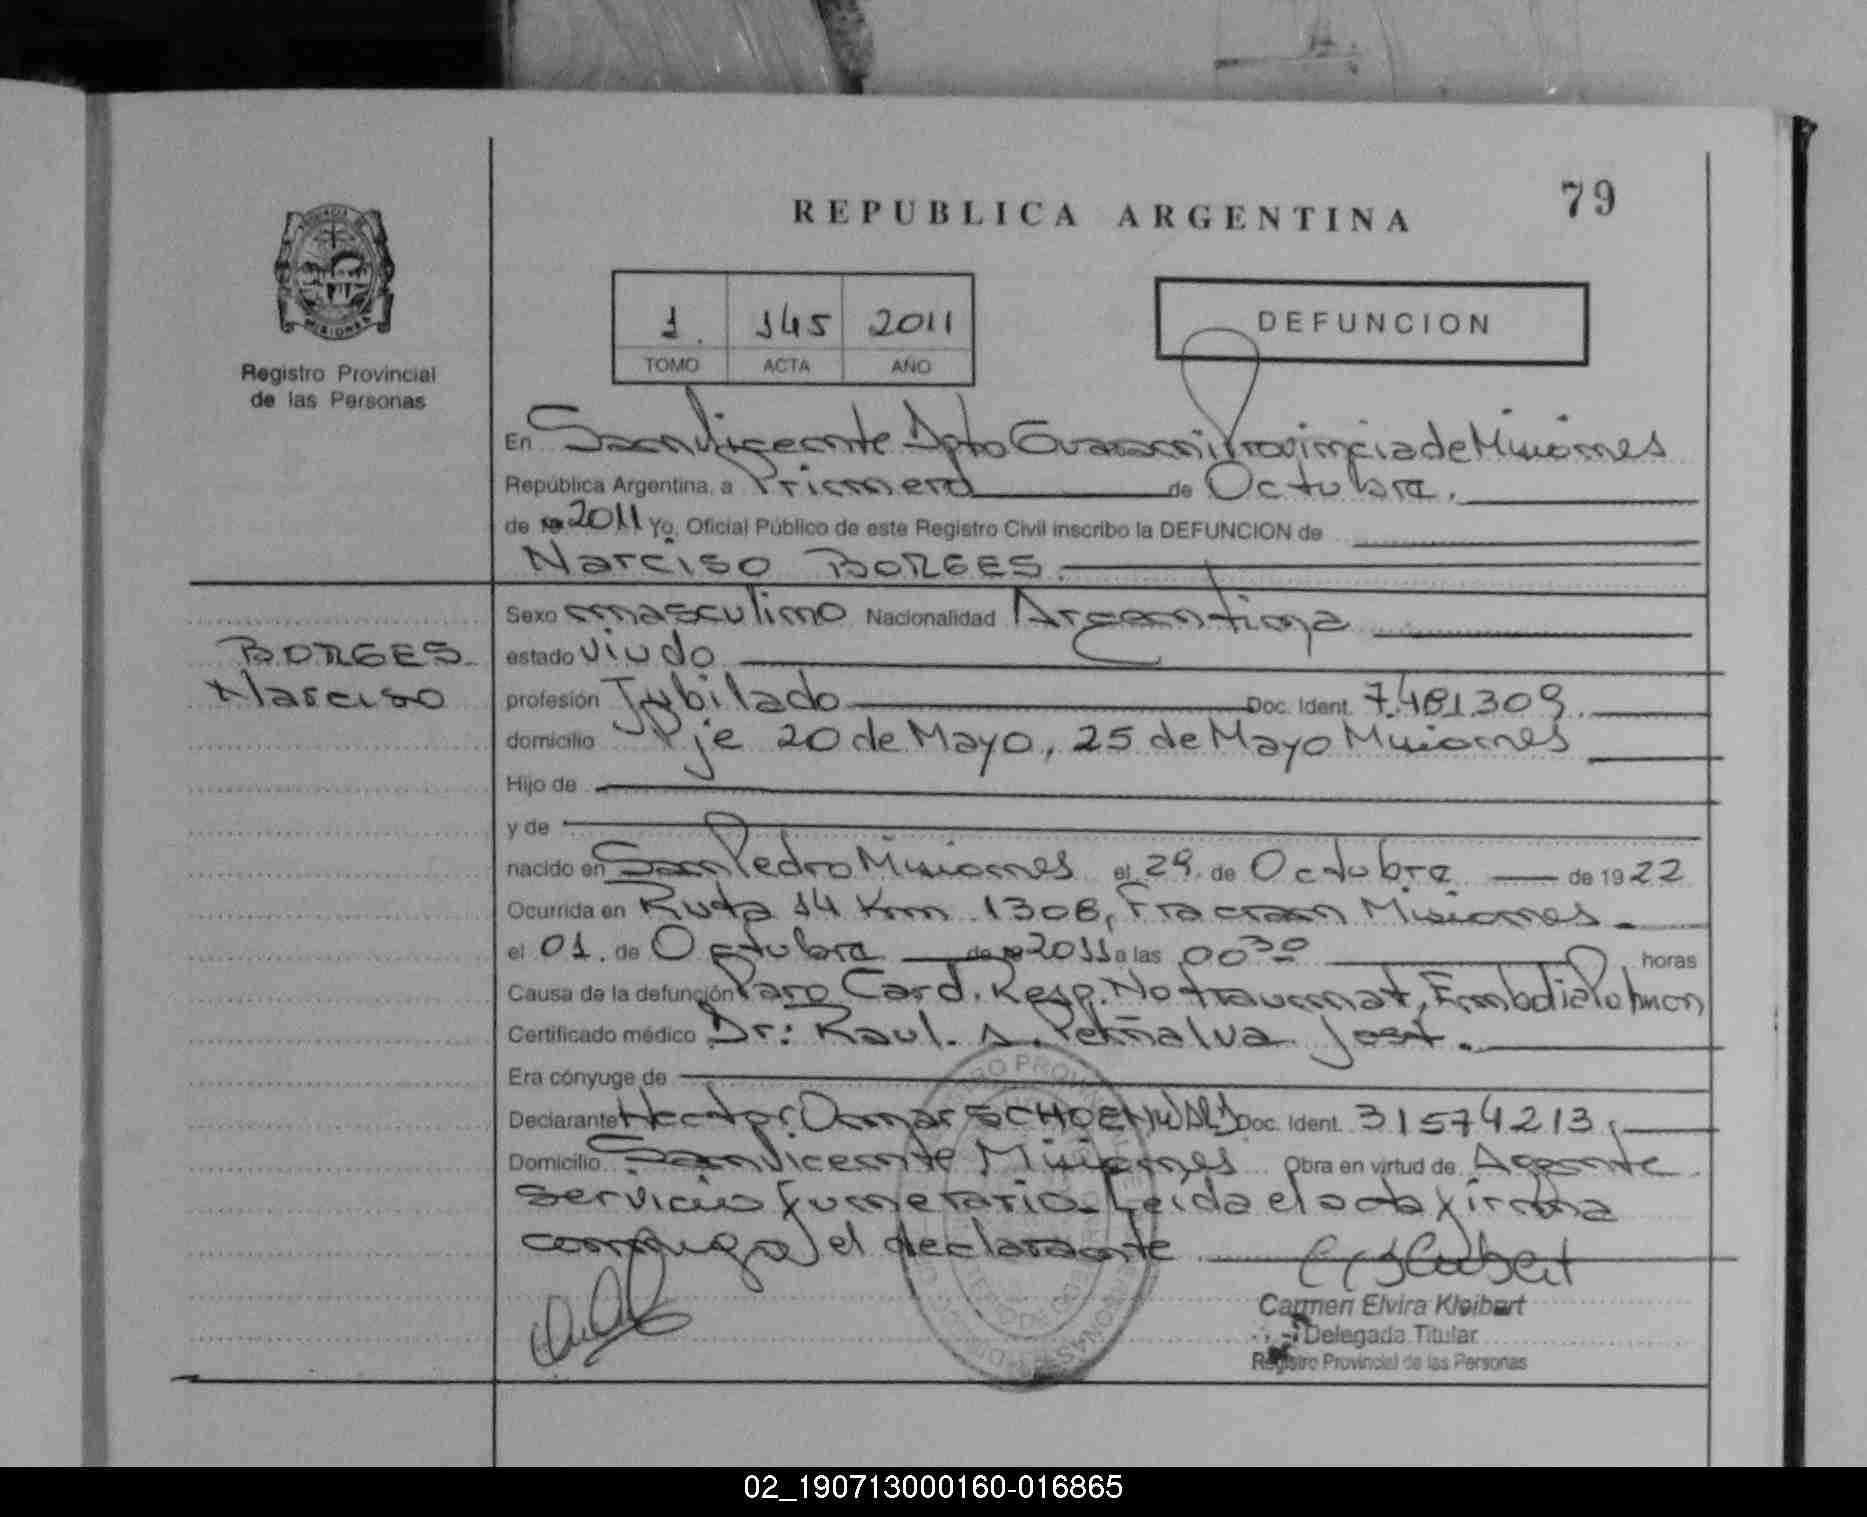 79
REPUBLICA ARGENTINA
MISIONES
Registro Provincial
de las Personas
1. 145 2011
TOMO ACTA AÑO
DEFUNCION
En San Vicente Dpto Guarani Provincia de Misiones
República Argentina, a Primero de Octubre.
de 2011 Yo, Oficial Público de este Registro Civil inscribo la DEFUNCION de
Narciso BORGES.
BORGES
Narciso
Sexo masculino Nacionalidad Argentina
estado viudo
profesión Jubilado Doc. Ident. 7.481.309.
domicilio Pje 20 de Mayo, 25 de Mayo Misiones
Hijo de
y de
nacido en San Pedro Misiones el 29 de Octubre de 1922
Ocurrida en Ruta 14 Km 1308, Fracran Misiones.
el 01. de Octubre de 2011 a las 00 30 horas
Causa de la defunción Paro Card. Resp. No traumat, Embolia Pulmon
Certificado médico Dr: Raul. A. Peñalva José.
Era cónyuge de
Declarante Hector Omar Doc. Ident. 31574213,
Domicilio San Vicente Misiones Obra en virtud de Agente
servicio funerario. Leida el acta firma
conmigo el declarante
Carmen Elvira Kleibert
Delegada Titular
Registro Provincial de las Personas
02_190713000160-016865